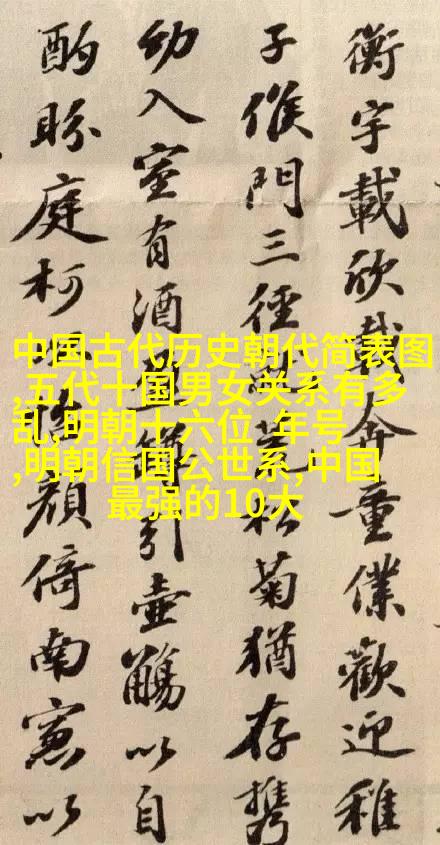 衡宇載欣載奔童僕歡迎稚
子候門三徑就荒松菊猶存携
幼入室有酒盈罇引壺觴以自
酌眄庭柯以怡顔倚南窓以
中国古代历史朝代简表图
,五代十国男女关系有多
乱,明朝十六位 年号
,明朝信国公世系,中国
最强的10大